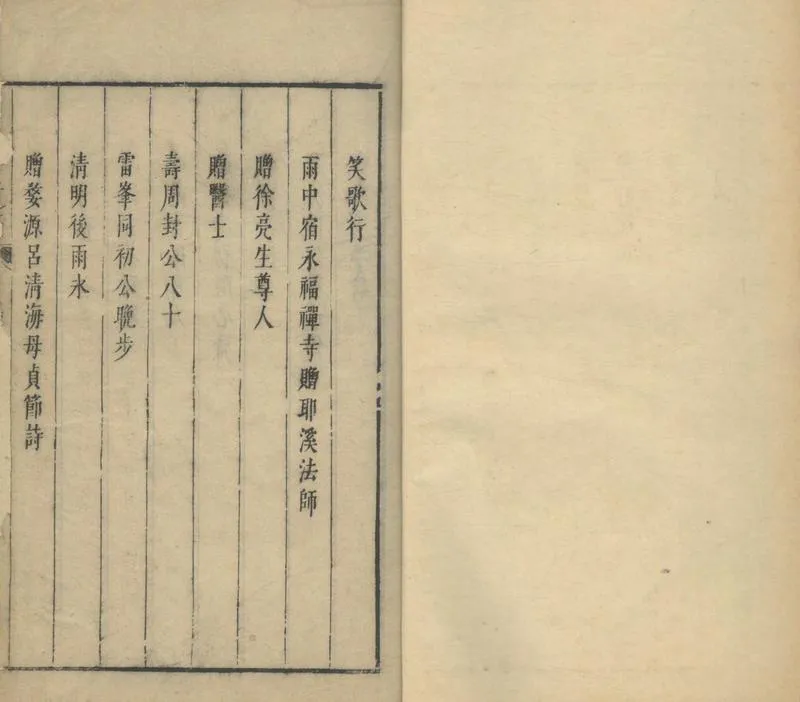 笑歌行
雨中宿永福禪寺贈耶溪法師
贈徐亮生尊人
贈醫士
壽周封公八十
雷峯同初公晚步
清明後雨水
贈婺源呂清海母貞節詩